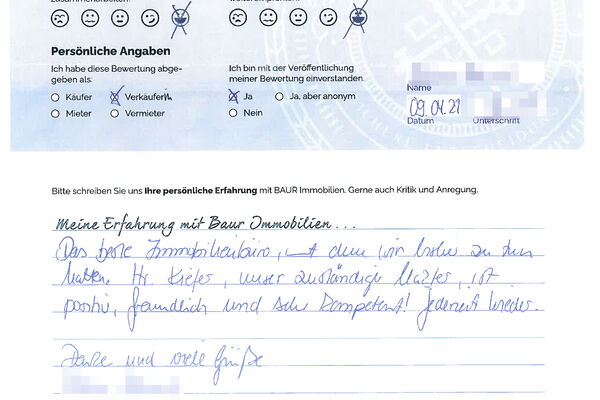 zusammenarbeiten?
weiterempfehlen?
Persönliche Angaben
Ich habe diese Bewertung abge-
geben als:
Käufer
Verkäuferin
Mieter
Vermieter
Ich bin mit der Veröffentlichung
meiner Bewertung einverstanden.
Ja
Ja, aber anonym
Nein
Name
09.04.21
Datum
Unterschrift
Bitte schreiben Sie uns Ihre persönliche Erfahrung mit BAUR Immobilien. Gerne auch Kritik und Anregung.
Meine Erfahrung mit Baur Immobilien...
Das beste Immobilienbüro, mit dem wir bisher zu tun
hatten. Hr. Kiefer, unser zuständiger Makler, ist
positiv, freundlich und sehr kompetent! Jederzeit wieder.
Danke und viele Grüße